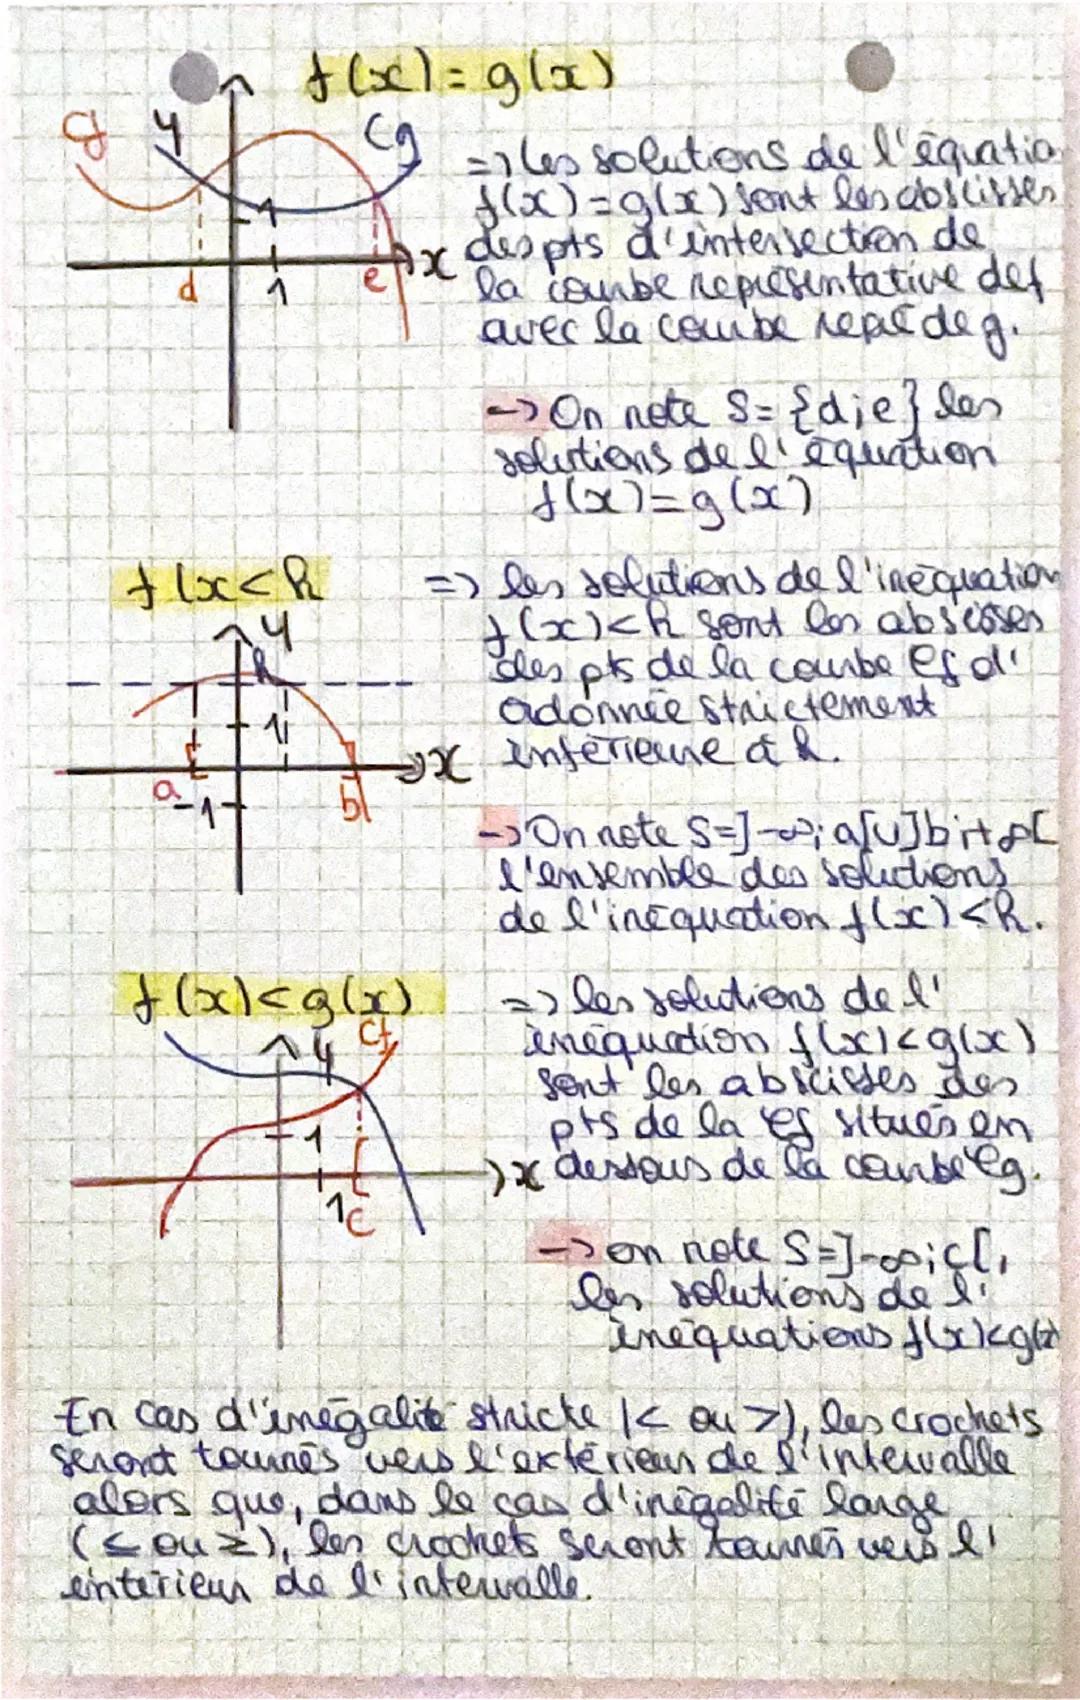 f(x) = g(x)
Cf y Cg
1
x
d 1 e
=> les solutions de l'équatio
f(x) = g(x) sont les abscisses
des pts d'intersection de
la courbe représentative de f
avec la courbe repré de g.
-> On note S = {d;e} les
solutions de l'équation
f(x) = g(x)
f(x<k
y
k
1
x
a
-1
b
=> les solutions de l'inéquation
f(x)<k sont les abscisses
des pts de la courbe Cf d'
ordonnée strictement
inférieure à k.
-> On note S=]-∞; a[U]b;+∞[
l'ensemble des solutions
de l'inéquation f(x) <k.
f(x)< g(x)
y Cf
1
x
1 c
=> les solutions de l'
inéquation f(x)<g(x)
sont les abscisses des
pts de la Cf situés en
dessous de la courbe Cg.
-> on note S=]-∞;c[,
les solutions de l'
inéquations f(x)<g(x)
En cas d'inégalité stricte (< ou >), les crochets
seront tournés vers l'extérieur de l'intervalle
alors que, dans le cas d'inégalité large
(≤ ou ≥), les crochets seront tournés vers l'
intérieur de l'intervalle.